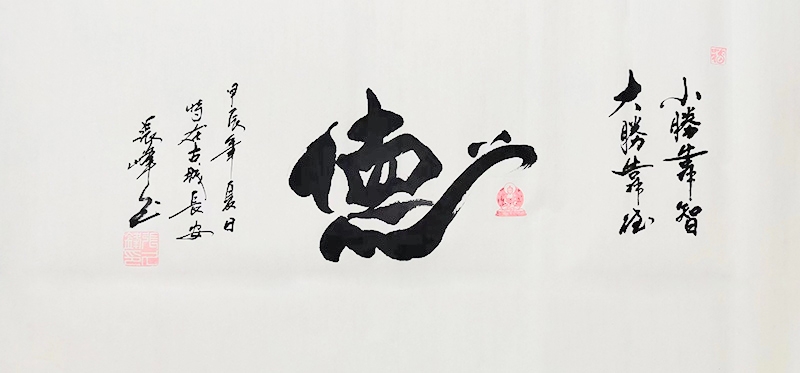 小勝靠智
大勝靠德
德
甲辰年夏日
時在古城長安
張峰書